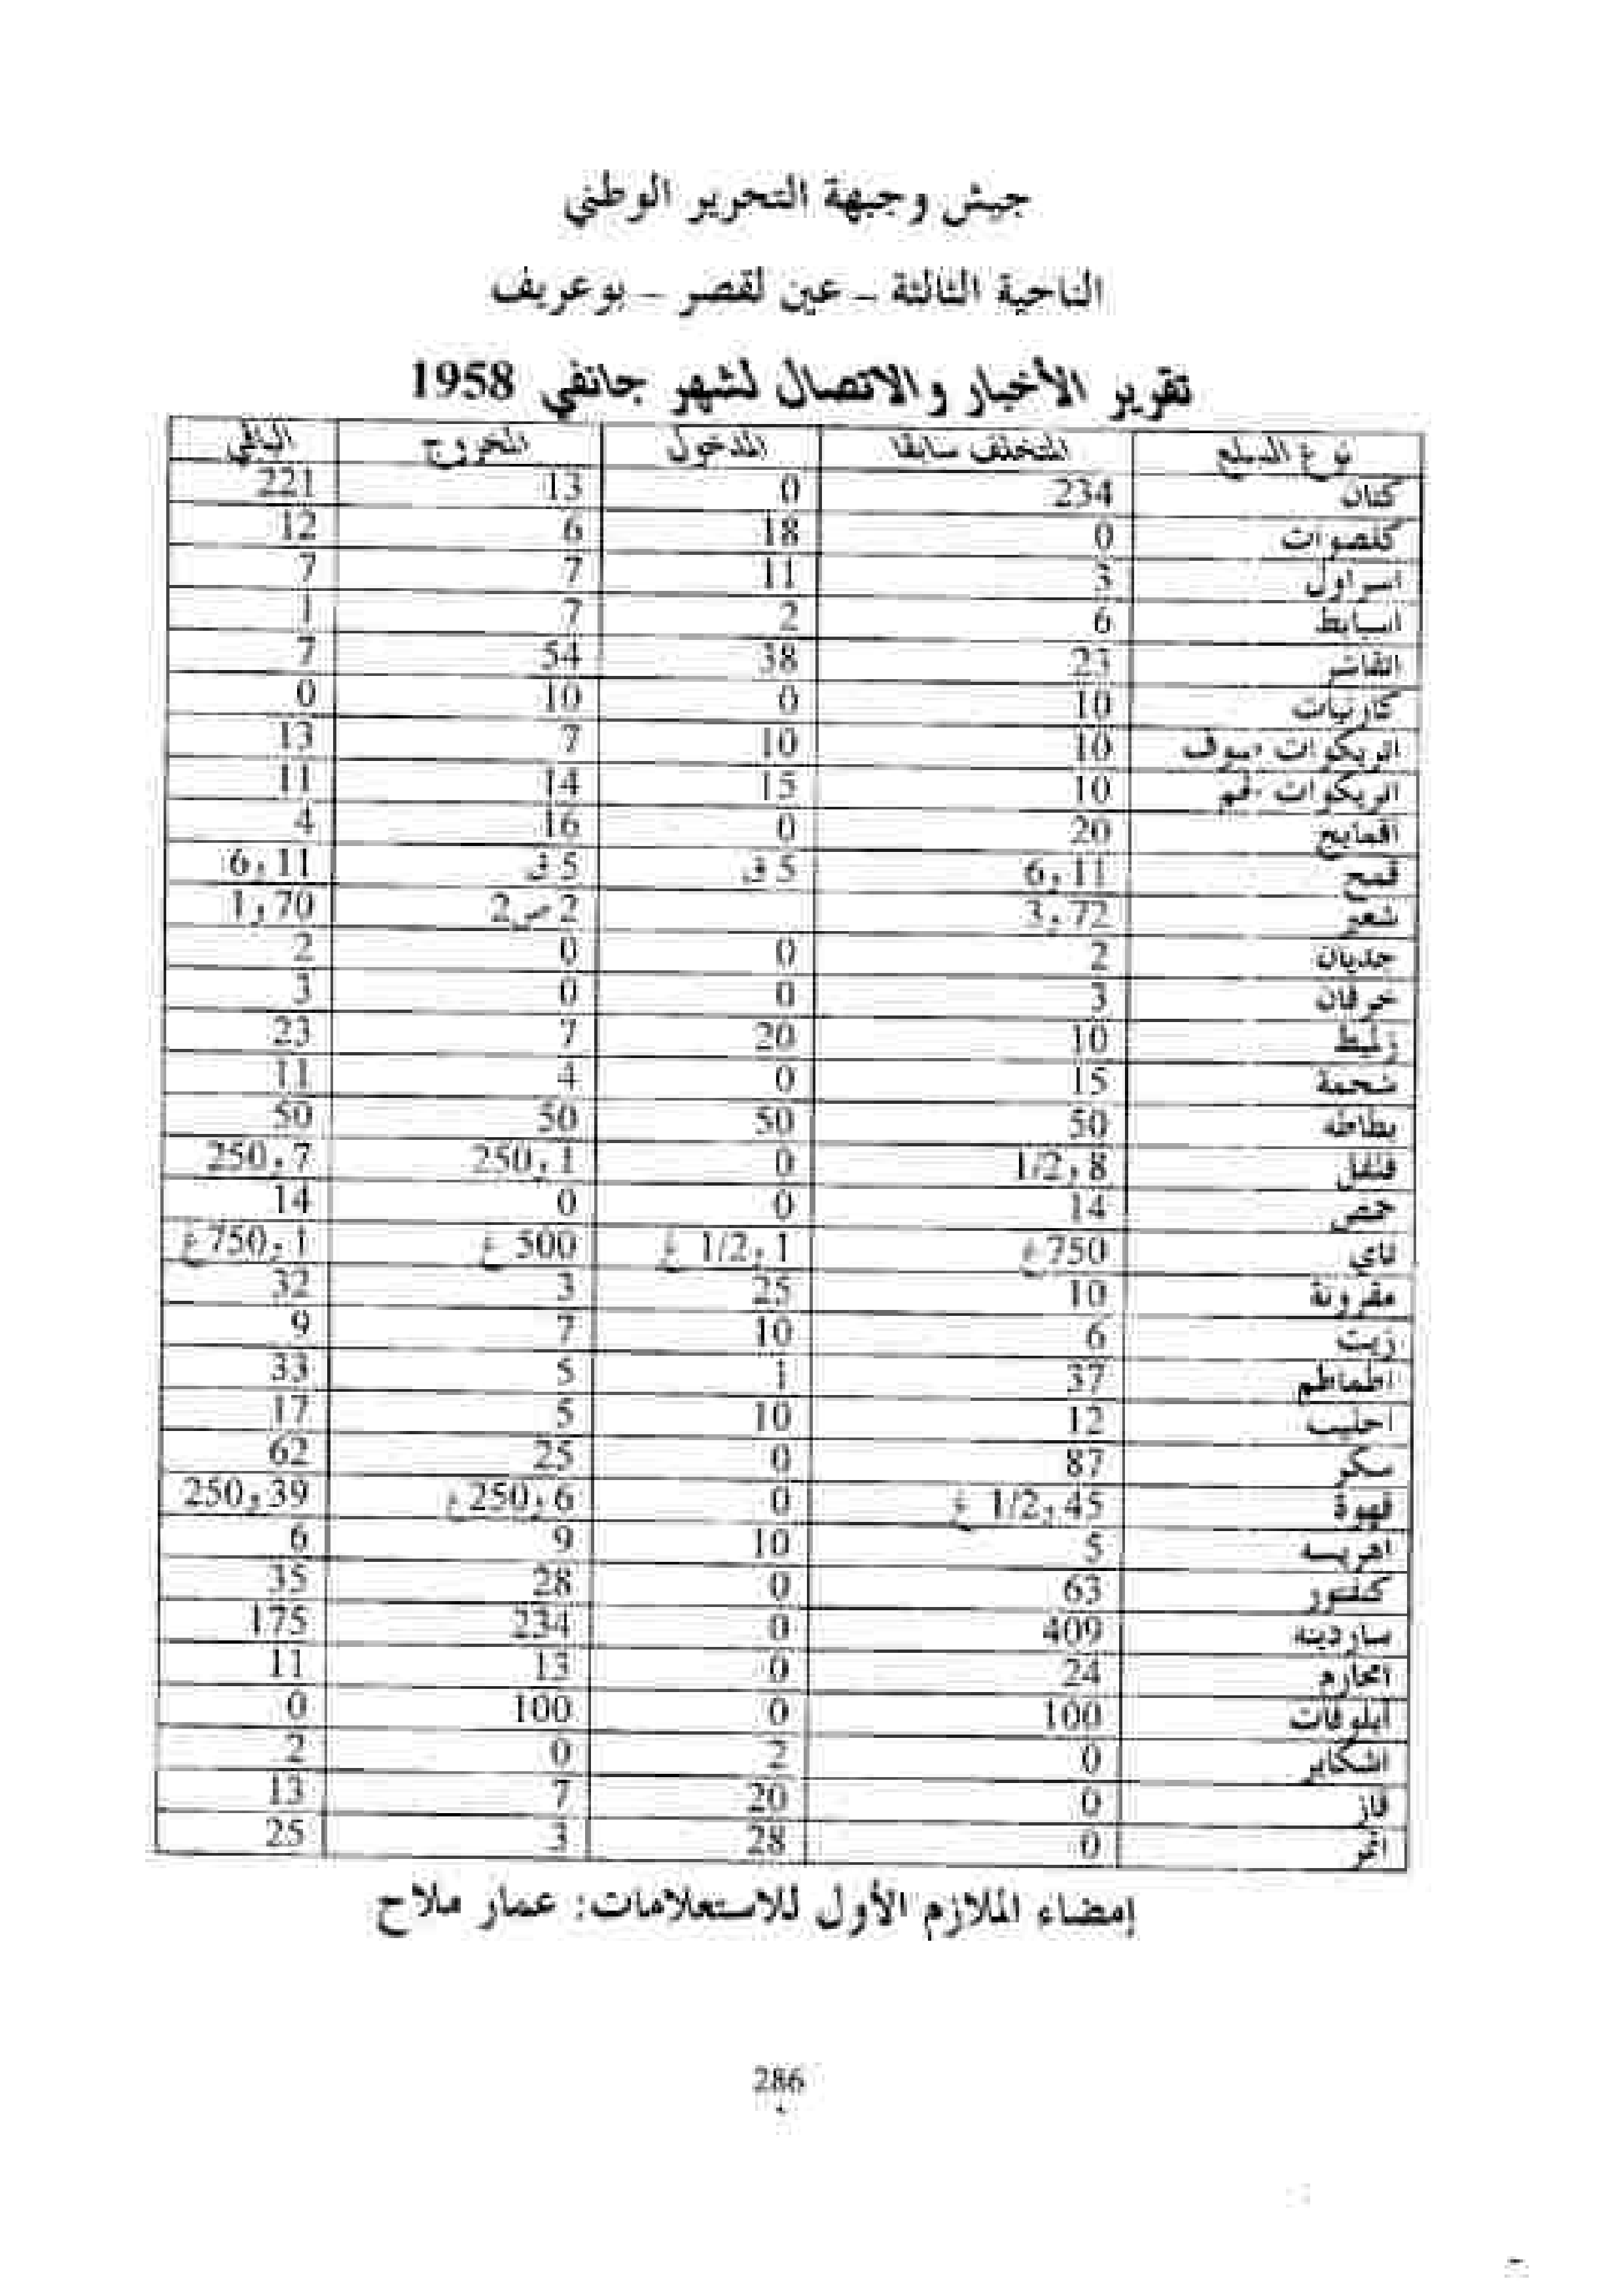 جيش وجبهة التحرير الوطني
الناحية الثالثة - عين لقصر - بوعريف
تقرير الأخبار والاتصال لشهر جانفي 1958
نوع السلع المتخلف سابقا المدخول المخروج الباقي
كتان 234 0 13 221
كلصوات 0 18 6 12
اسراول 3 11 7 7
اسبابط 6 2 7 1
اتقاشر 23 38 54 7
كارنيات 10 0 10 0
اتريكوات -سوف 10 10 7 13
اتريكوات -قم 10 15 14 11
اقمايج 20 0 16 4
قمح 11و6 5 ق 5 ق 11و6
شعير 72و3 2 ص2 70و1
جديان 2 0 0 2
خرفان 3 0 0 3
10 20 7 23
شحمة 15 0 4 11
بطاطه 50 50 50 50
فلفل 8و1/2 0 1و250 7و250
حمص 14 0 0 14
تاي 750غ 1و1/2 غ 500 غ 1و750غ
مقرونة 10 25 3 32
زيت 6 10 7 9
اطماطم 37 1 5 33
احليب 12 10 5 17
سكر 87 0 25 62
قهوة 45و1/2 غ 0 6و250غ 39و250
5 10 9 6
63 0 28 35
ساردينه 409 0 234 175
امحارم 24 0 13 11
ابلوفات 100 0 100 0
اشكاير 0 2 0 2
قاز 0 20 7 13
اتمر 0 28 3 25
إمضاء الملازم الأول للاستعلامات: عمار ملاح
286